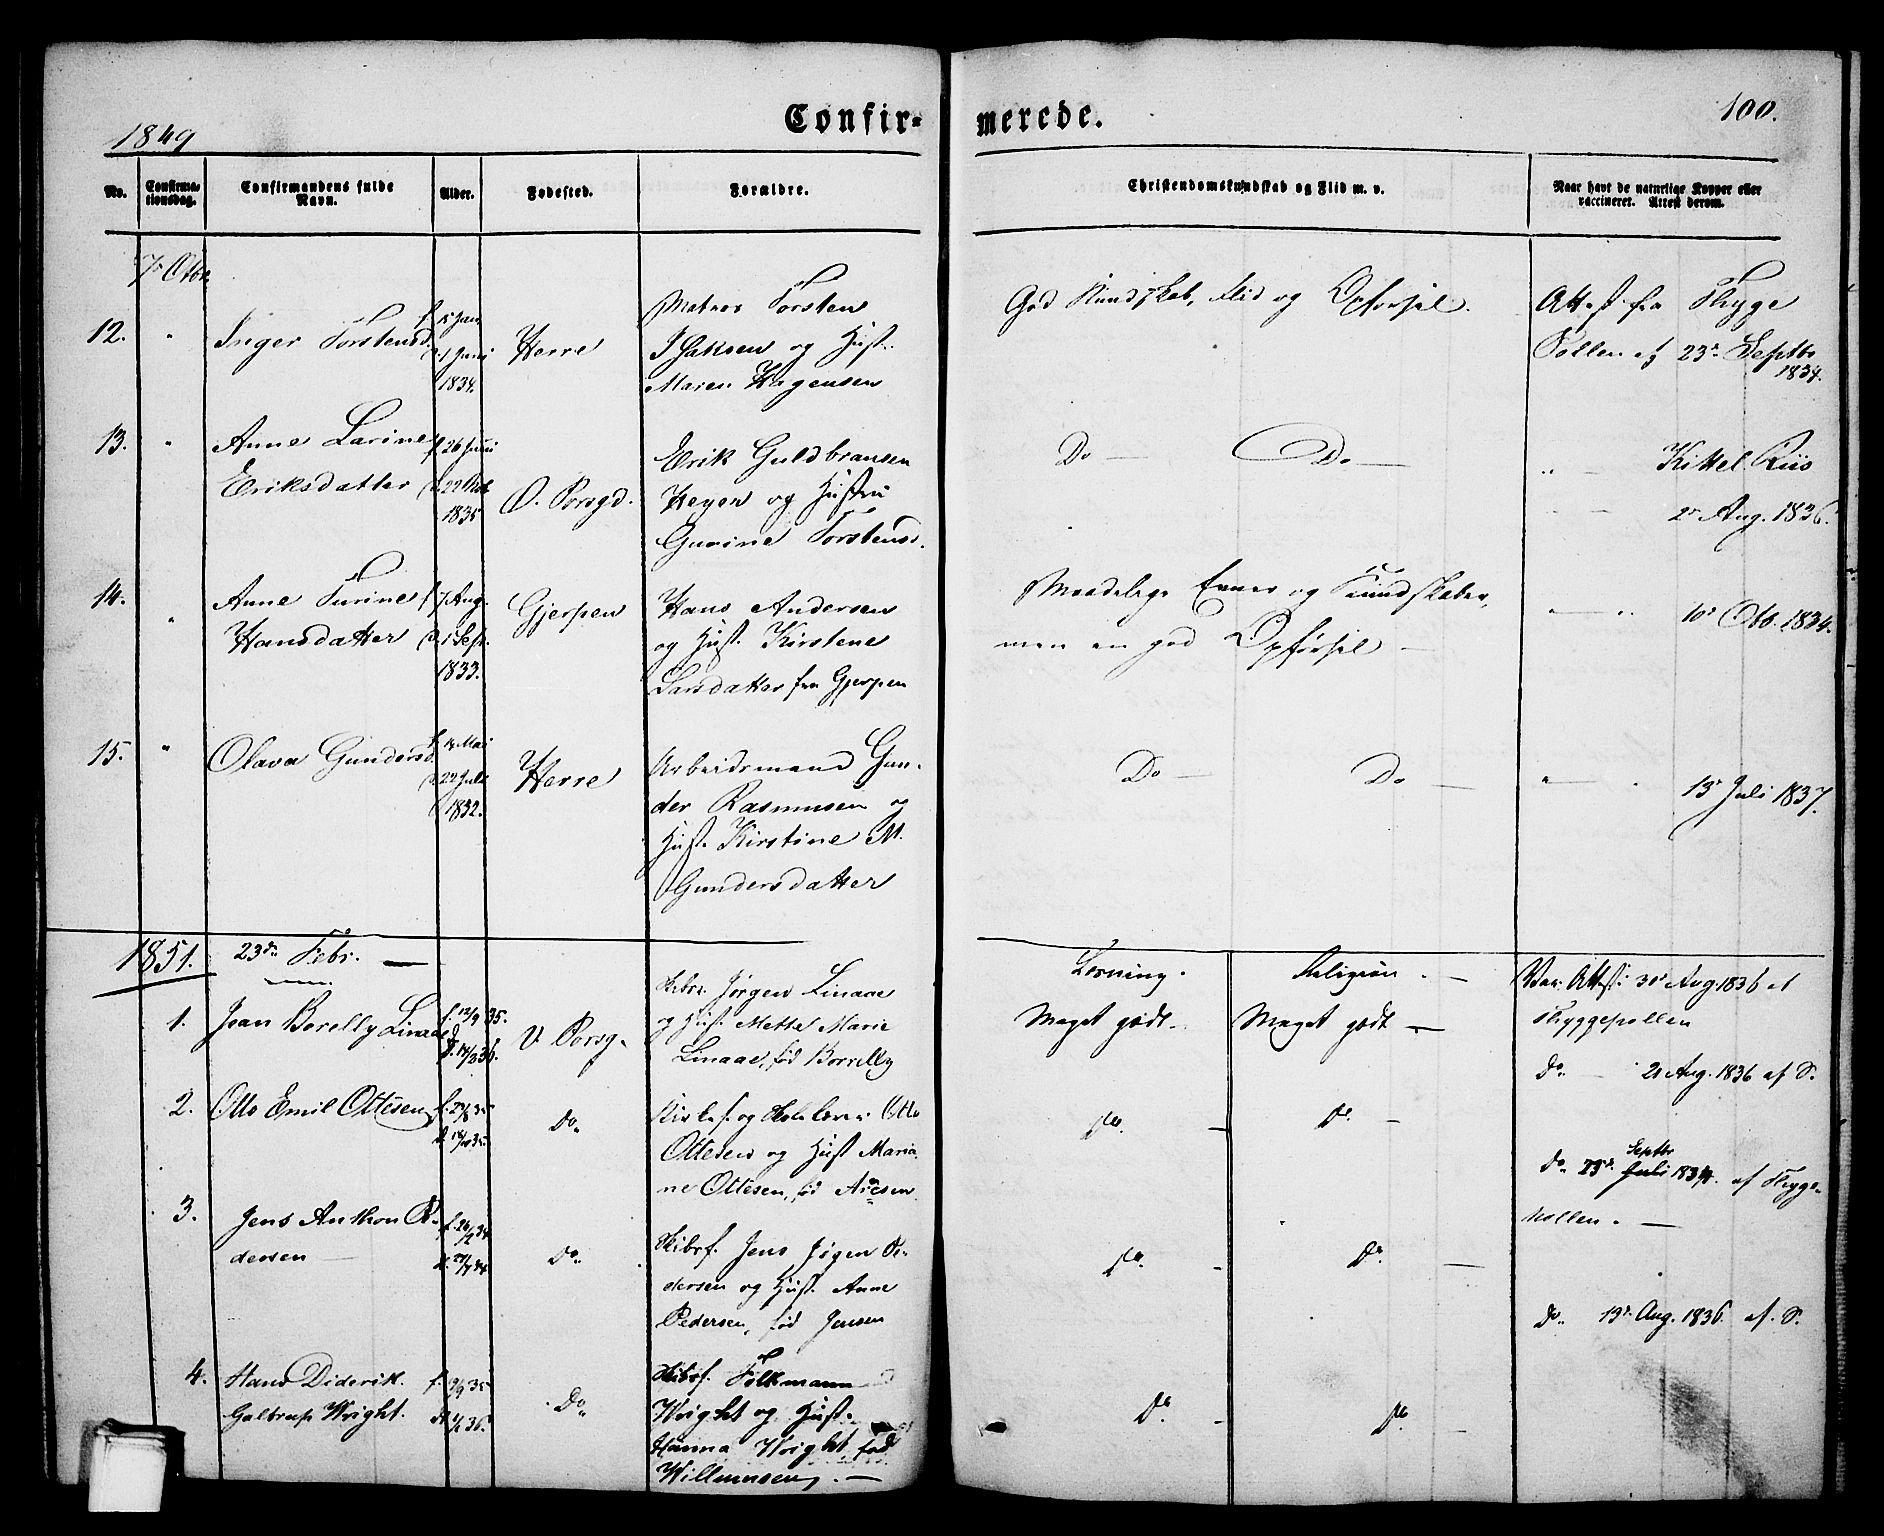 1849
Confir-
merede.
100.
No.
Confirma-
tionsdag.
Confirmandens fulde
Navn.
Alder.
Fødested.
Forældre.
Christendomskundskab og Flid m. v.
Naar havt de naturlige Kopper eller
vaccineret. Attest derom.
7de Otbr.
12. " Inger Torstensd.
f. 15 Jan.
d. 1 Juni
1834.
Herre
Matros Torsten
Isaksen og Hust.
Maren Hagensen
God Kundskab, Flid og Opførsel.
Attest fra Thyge
Pollen af 23de Septbr
1834.
13. " Anne Larine
Eriksdatter
f. 26 Juni
1835
Ø. Porsgd.
Erik Guldbransen
Heyer og Hustru
Gurine Torstensd.
Do — Do —
" — Kittel Riis
2de Aug. 1836.
14. " Anne Turine
Hansdatter
f. 7 Aug.
d. 1 Sept.
1833.
Gjerpen
Hans Andersen
og Hust. Kirstene
Larsdatter fra Gjerpen
Maadelige Evner og Kundskaber,
men en god Opførsel —
" — " 10de Otb. 1834.
15. " Olava Gundersd.
f. 14 Mai
d. 29 Juli
1832.
Herre
Arbeidsmand Gun-
der Rasmusen og
Hust. Kirstine M.
Gundersdatter
Do — Do —
" — " 13de Juli 1837.
1851. 23de Febr. —
Læsning. Religion. —
1. Joan Borelly Linaae
f. 13/9 35.
d. 14/3 36.
V. Porsg.
Skibsr. Jørgen Linaae
og Hust. Mette Marie
Linaae, fød Borrelly
Meget godt. Meget godt —
Vac. Attest 30te Aug. 1836 af
Thyggepollen
2. Otto Emil Ottesen
Do.
Kirkes. og Skolelærer Otto
Ottesen og Hust Maria-
ne Ottesen, fød Ariesen
Do. — Do. —
Do. — 21 Aug. 1836 af S.
3. Jens Anthon Pe-
dersen —
Do.
Skibsf. Jens Jøgen Pe-
dersen og Hust. Anne
Pedersen, fød Jensen
Do. — Do. —
Do. 23de Septbr Juli 1834. af Thyge-
kollen. —
4. Hans Diderik
Galtrup Wright.
Do.
Skibsf. Folkmann
Wright og Hust.
Hanna Wright fød
Willumsen. —
Do. — Do.
Do. 13de Aug. 1836. af. S.